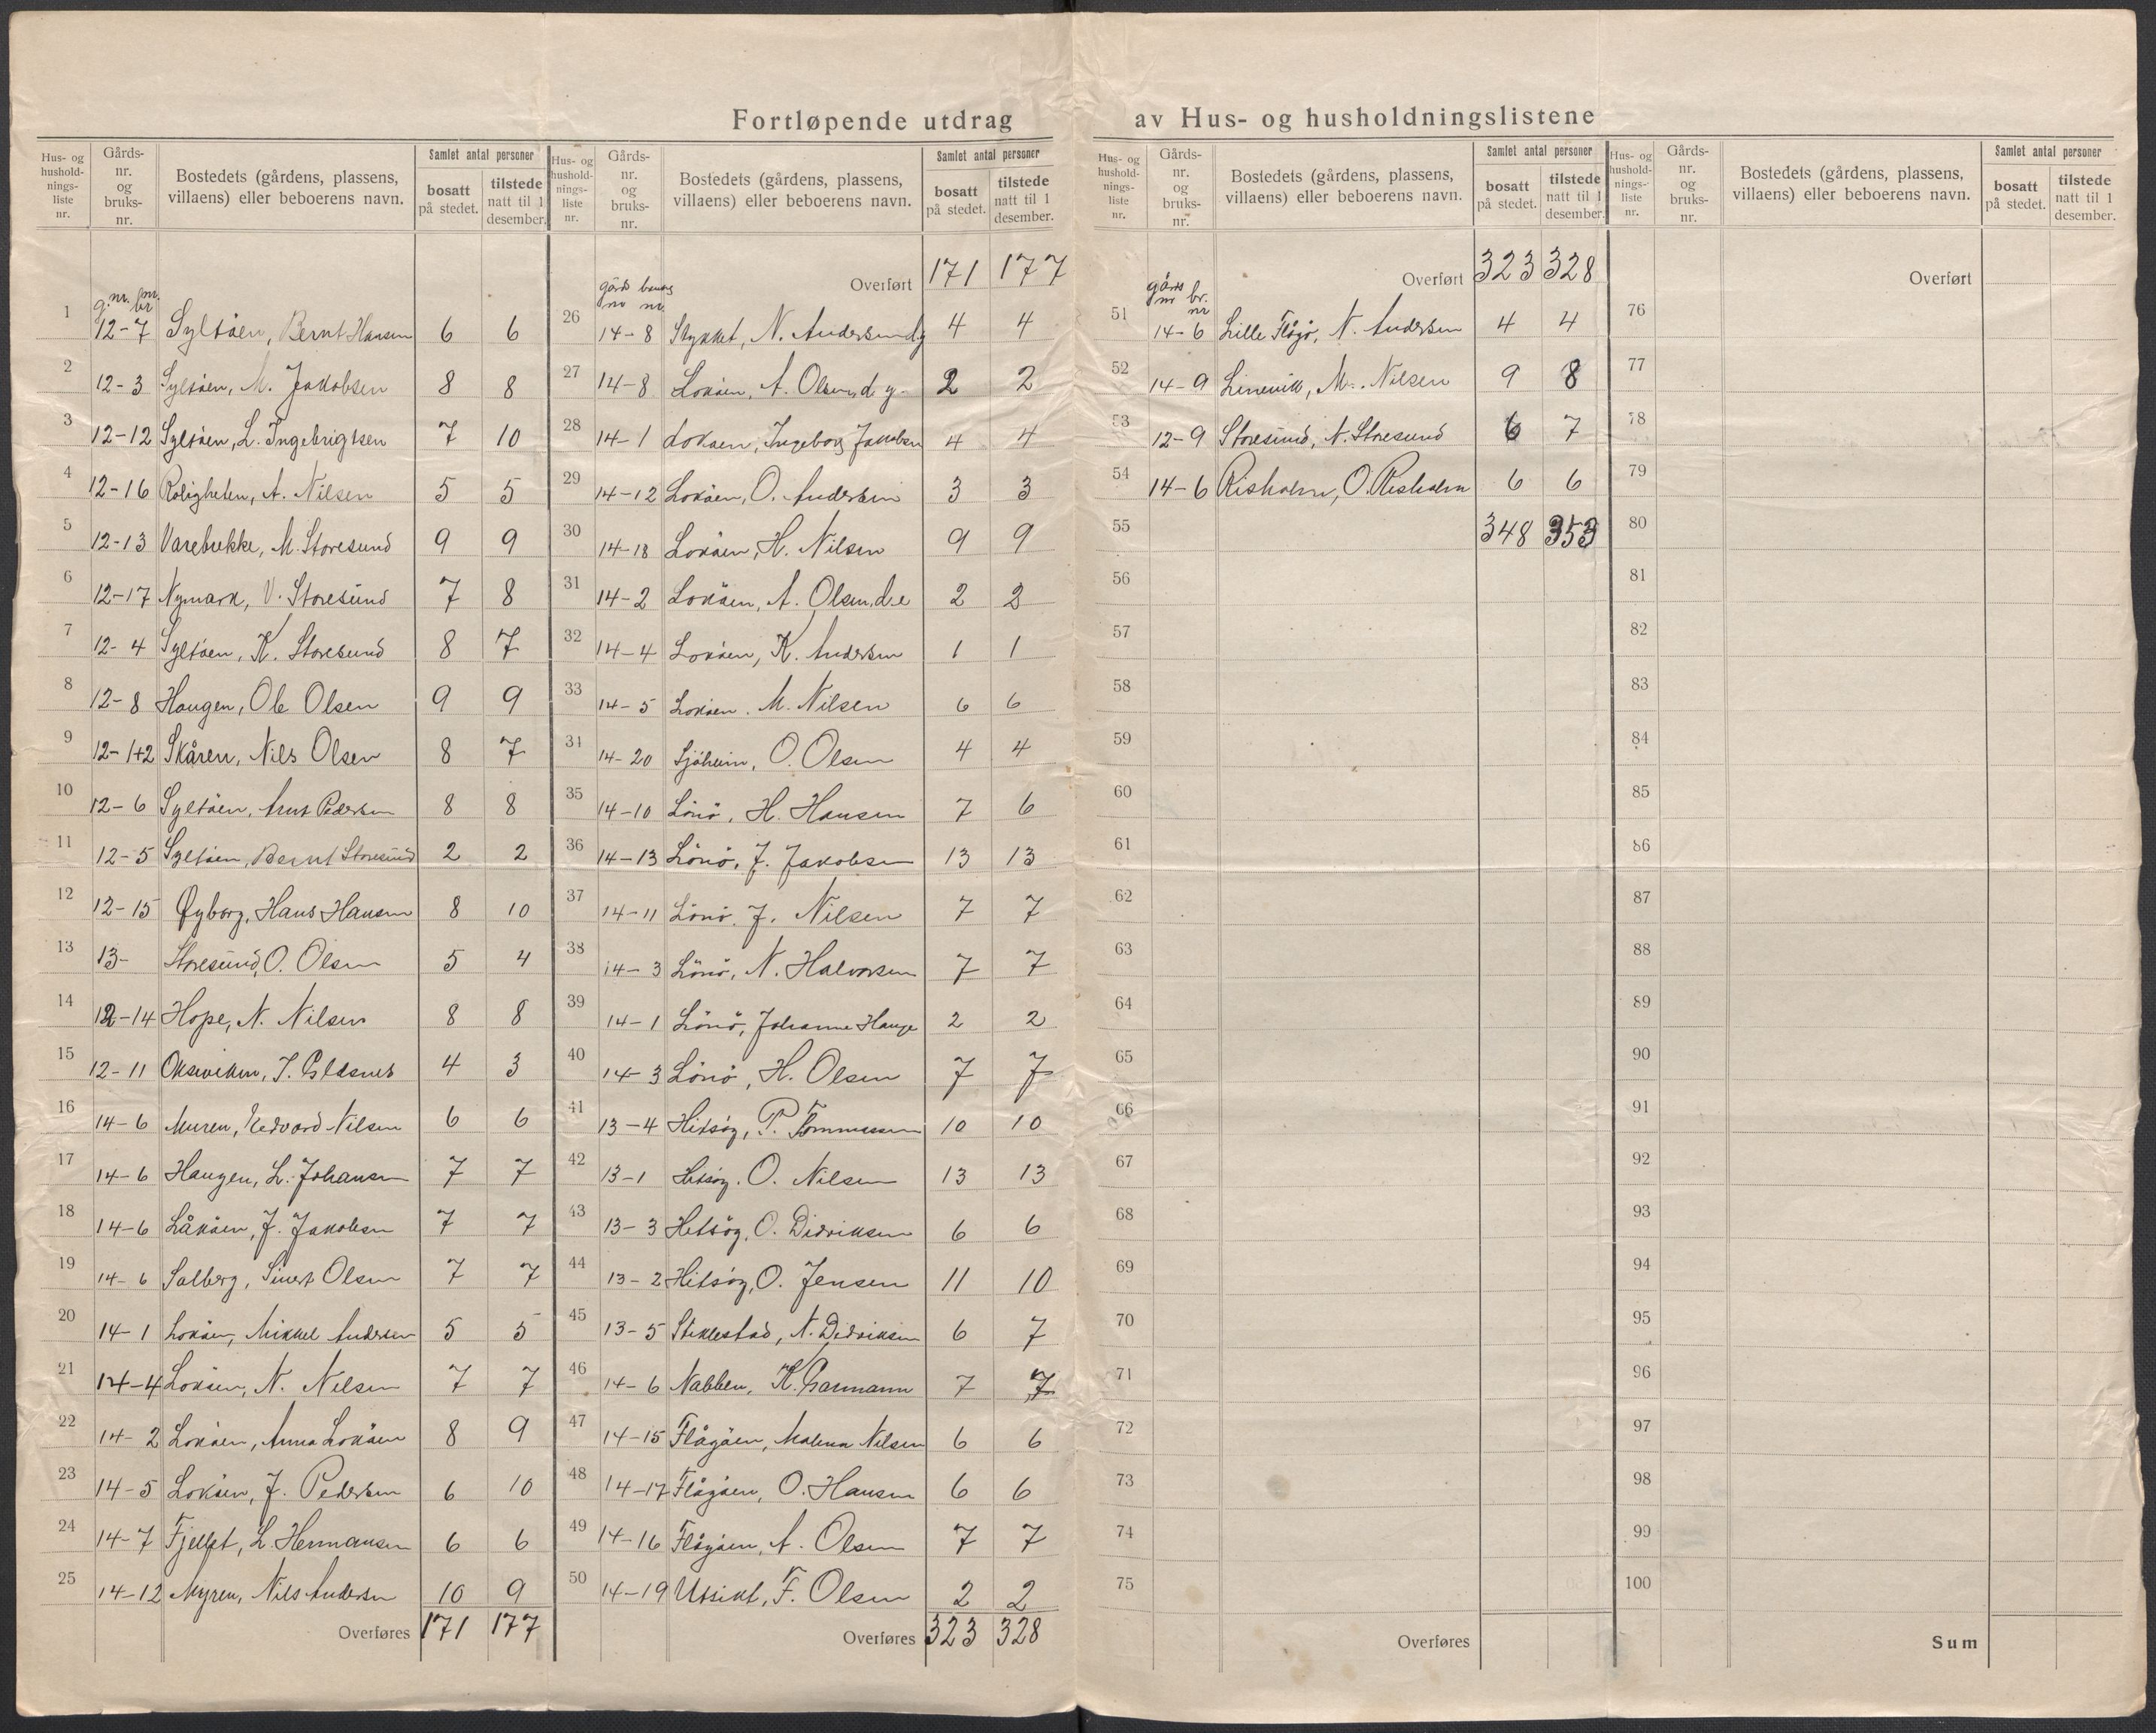 Fortløpende utdrag av Hus- og husholdningslistene
Hus- og husholdnings-liste nr. Gårds-nr. og bruks-nr. Bostedets (gårdens, plassens, villaens) eller beboerens navn. Samlet antal personer bosatt på stedet. tilstede natt til 1 desember.
g.nr. br.nr.
1 12-7 Syltöen, Bernt Hansen 6 6
2 12-3 Syltöen, M. Jakobsen 8 8
3 12-12 Syltöen, L. Ingebrigtsen 7 10
4 12-16 Roligheten, A. Nilsen 5 5
5 12-13 Varebrekke, M. Storesund 9 9
6 12-17 Nymark, V. Storesund 7 8
7 12-4 Syltöen, K. Storesund 8 7
8 12-8 Haugen, Ole Olsen 9 9
9 12-1+2 Skåren, Nils Olsen 8 7
10 12-6 Syltöen, Arnt Pedersen 8 8
11 12-5 Syltöen, Bernt Storesund 2 2
12 12-15 Øyborg, Hans Hansen 8 10
13 13- Storesund, O. Olsen 5 4
14 12-14 Hope, N. Nilsen 8 8
15 12-11 Oksviken, J. 4 3
16 14-6 Muren, Edvard Nilsen 6 6
17 14-6 Haugen, L. Johansen 7 7
18 14-6 Låköen, J. Jakobsen 7 7
19 14-6 Solberg, Sivert Olsen 7 7
20 14-1 Loköen, Mikkel Andersen 5 5
21 14-4 Loköen, N. Nilsen 7 7
22 14-2 Loköen, Anna Loköen 8 9
23 14-5 Loköen, J. Pedersen 6 10
24 14-7 Fjellet, L. Hermansen 6 6
25 14-12 Myren, Nils Andersen 10 9
Overføres 171 177
Hus- og husholdnings-liste nr. Gårds-nr. og bruks-nr. Bostedets (gårdens, plassens, villaens) eller beboerens navn. Samlet antal personer bosatt på stedet. tilstede natt til 1 desember.
Overført 171 177
gårds nr bruks nr.
26 14-8 Stykket, N. Andersen d.y 4 4
27 14-8 Loköen, A. Olsen, d. y. 2 2
28 14-1 Loköen, Ingeborg Jakobsen 4 4
29 14-12 Loköen, O. Andersen 3 3
30 14-18 Loköen, H. Nilsen 9 9
31 14-2 Loköen, A. Olsen, d.e 2 2
32 14-4 Loköen, K. Andersen 1 1
33 14-5 Loköen. M. Nilsen 6 6
34 14-20 Sjöheim, O. Olsen 4 4
35 14-10 Lönö, H. Hansen 7 6
36 14-13 Lönö, J. Jakobsen 13 13
37 14-11 Lönö, J. Nilsen 7 7
38 14-3 Lönö, N. Halvorsen 7 7
39 14-1 Lönö, Johanne Hauge 2 2
40 14-3 Lönö, H. Olsen 7 7
41 13-4 Hitsöy, P. Tommessen 10 10
42 13-1 Hitsöy. O. Nilsen 13 13
43 13-3 Hitsöy, O. Didriksen 6 6
44 13-2 Hitsöy, O. Jensen 11 10
45 13-5 Stiklestad, N. Didriksen 6 7
46 14-6 Nabben, K. Garmann 7 7
47 14-15 Flågöen, Malena Nilsen 6 6
48 14-17 Flågöen, O. Hansen 6 6
49 14-16 Flågöen, A. Olsen 7 7
50 14-19 Utsikt, F. Olsen 2 2
Overføres 323 328
Hus- og husholdnings-liste nr. Gårds-nr. og bruks-nr. Bostedets (gårdens, plassens, villaens) eller beboerens navn. Samlet antal personer bosatt på stedet. tilstede natt til 1 desember.
Overført 323 328
gårds nr br. nr
51 14-6 Lille Flågö, N. Andersen 4 4
52 14-9 Linevik, M. Nilsen 9 8
53 12-9 Storesund, N. Storesund 6 7
54 14-6 Risholm, O. Risholm 6 6
55 348 353
56
57
58
59
60
61
62
63
64
65
66
67
68
69
70
71
72
73
74
75
Overføres
Hus- og husholdnings-liste nr. Gårds-nr. og bruks-nr. Bostedets (gårdens, plassens, villaens) eller beboerens navn. Samlet antal personer bosatt på stedet. tilstede natt til 1 desember.
Overført
76
77
78
79
80
81
82
83
84
85
86
87
88
89
90
91
92
93
94
95
96
97
98
99
100
Sum